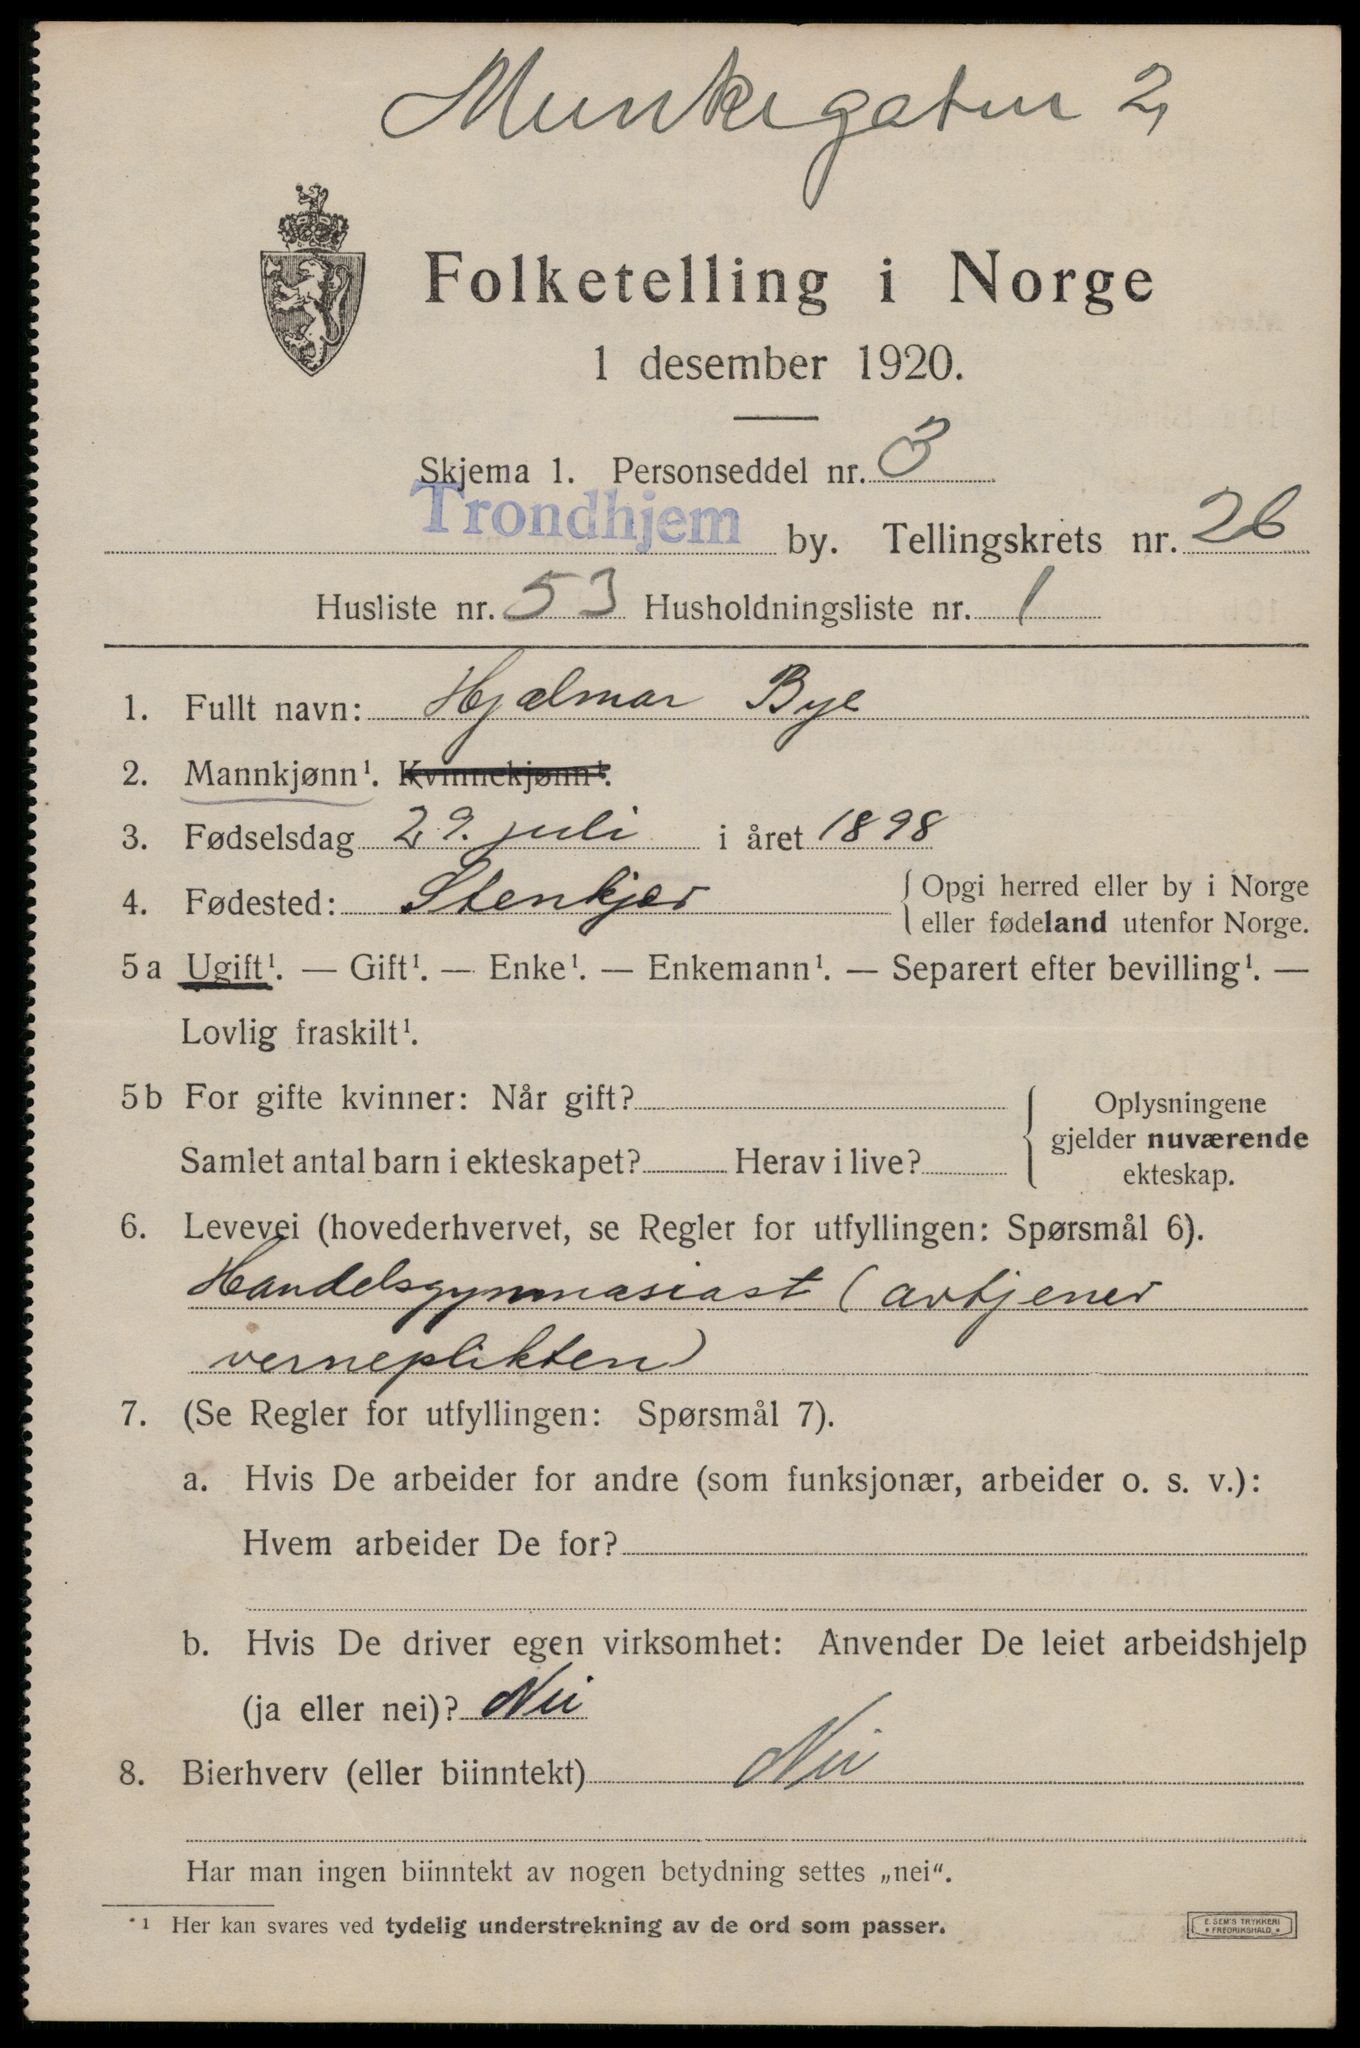 Munkegaten 2,
Folketelling i Norge
1 desember 1920.
Skjema 1. Personseddel nr. 3
Trondhjem by. Tellingskrets nr. 26
Husliste nr. 53 Husholdningsliste nr. 1
1. Fullt navn: Hjalmar Bye
2. Mannkjønn¹. Kvinnekjønn¹.
3. Fødselsdag 29. juli i året 1898
4. Fødested: Stenkjær { Opgi herred eller by i Norge
eller fødeland utenfor Norge.
5a Ugift¹. — Gift¹. — Enke¹. — Enkemann¹. — Separert efter bevilling¹. —
Lovlig fraskilt¹.
5b For gifte kvinner: Når gift?
Samlet antal barn i ekteskapet? Herav i live?
{ Oplysningene
gjelder nuværende
ekteskap.
6. Levevei (hovederhvervet, se Regler for utfyllingen: Spørsmål 6).
Handelsgymnasiast (avtjener
verneplikten)
7. (Se Regler for utfyllingen: Spørsmål 7).
a. Hvis De arbeider for andre (som funksjonær, arbeider o. s. v.):
Hvem arbeider De for?
b. Hvis De driver egen virksomhet: Anvender De leiet arbeidshjelp
(ja eller nei)? Nei
8. Bierhverv (eller biinntekt) Nei
Har man ingen biinntekt av nogen betydning settes „nei“.
*1 Her kan svares ved tydelig understrekning av de ord som passer.
E. SEM'S TRYKKERI
* FREDRIKSHALD *